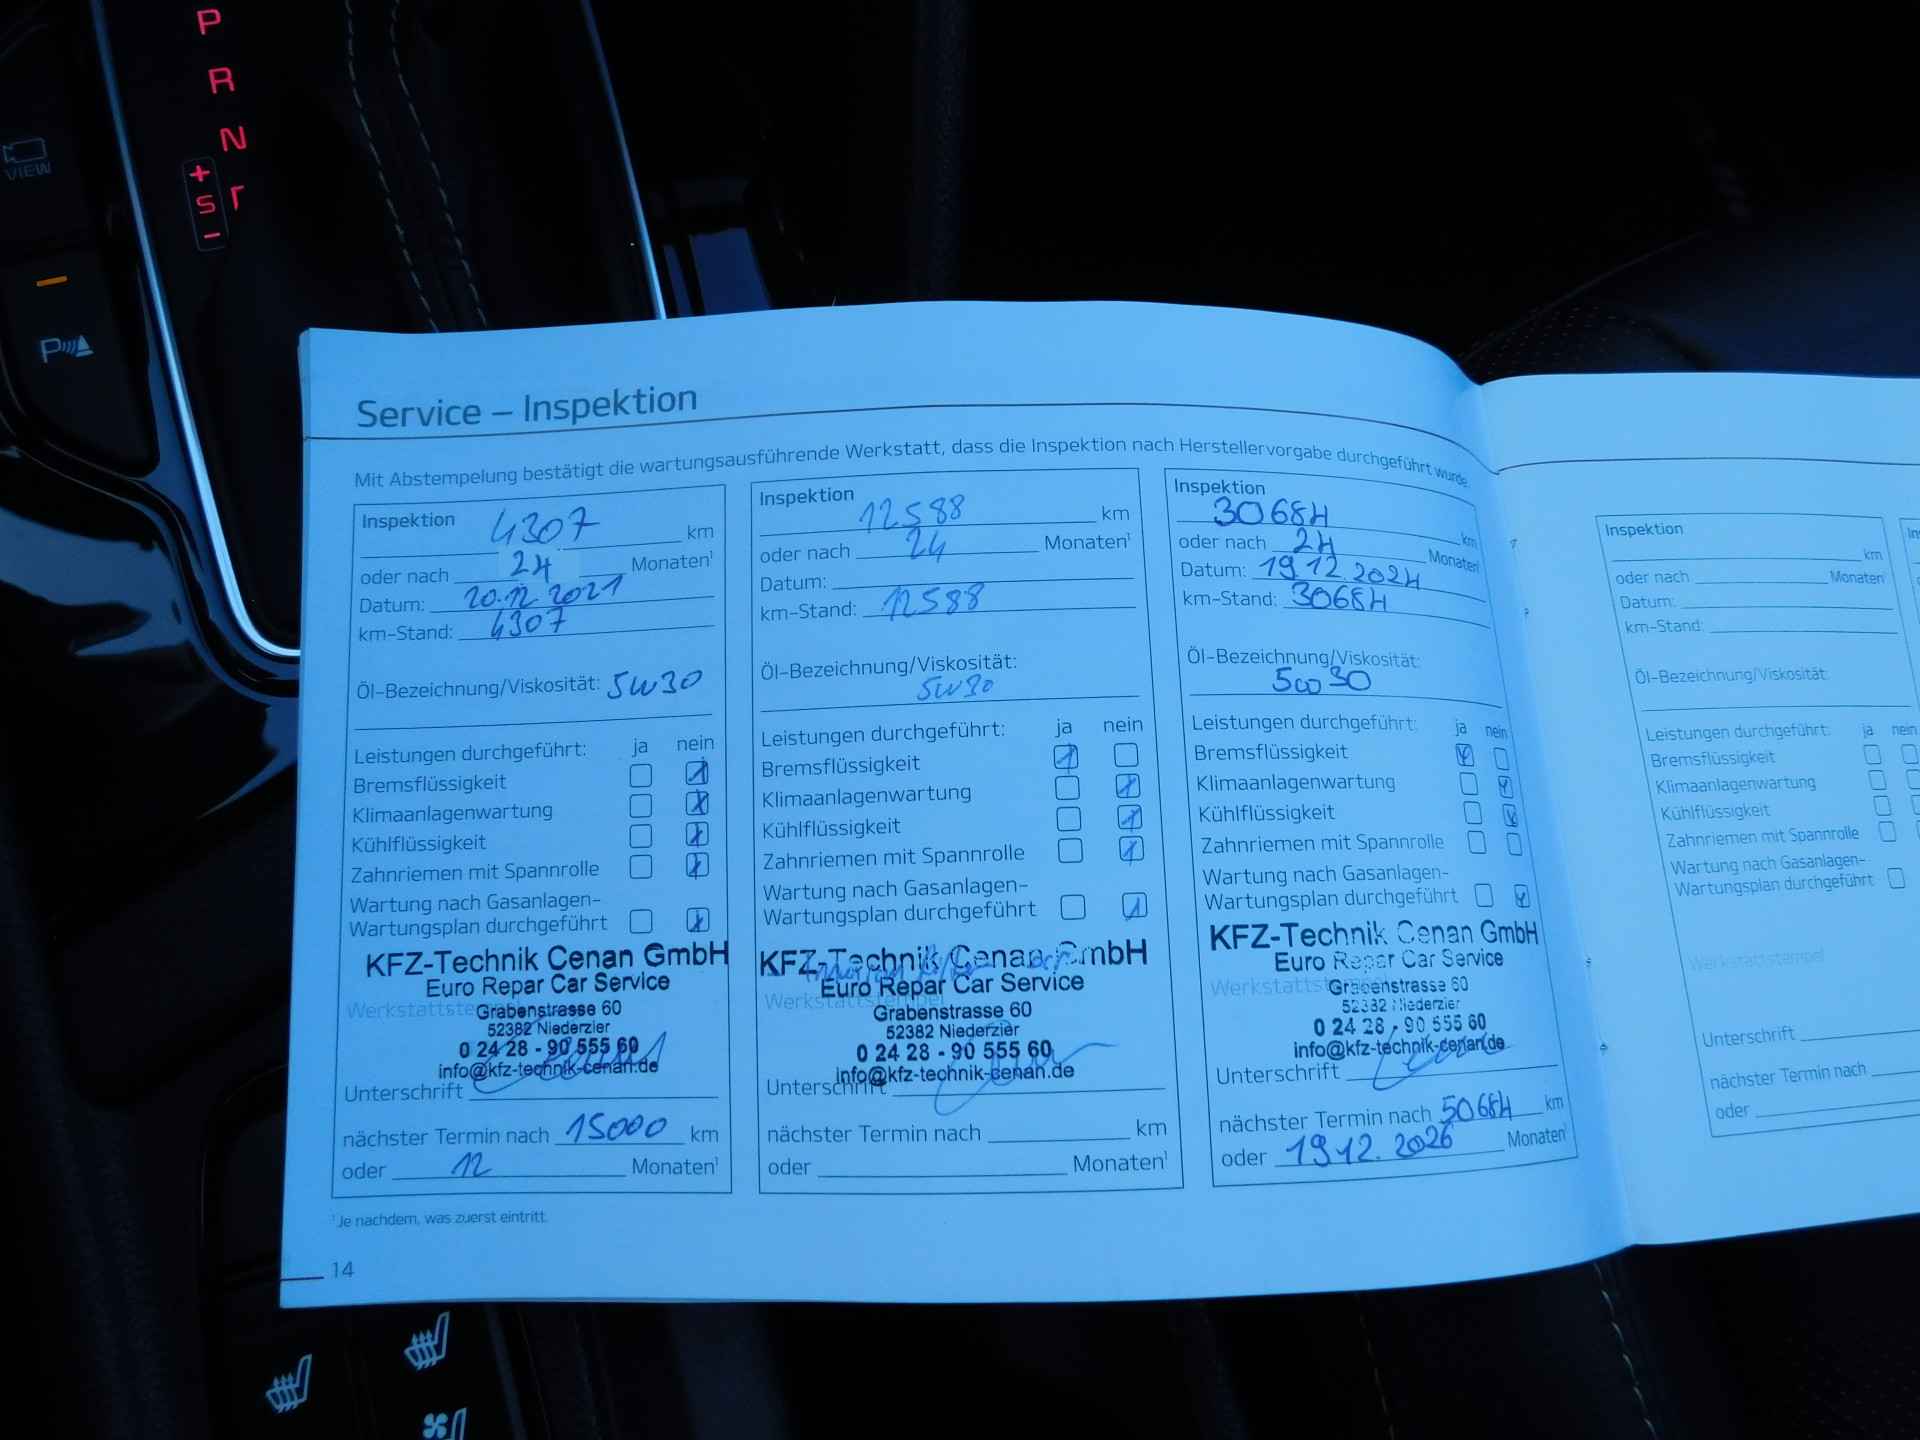 P
R
N
+
S
-
VIEW
P
Service – Inspektion
Mit Abstempelung bestätigt die wartungsausführende Werkstatt, dass die Inspektion nach Herstellervorgabe durchgeführt wurde.
Inspektion 4307 km
oder nach 24 Monaten¹
Datum: 20.12.2021
km-Stand: 4307
Öl-Bezeichnung/Viskosität: 5W30
Leistungen durchgeführt: ja nein
Bremsflüssigkeit
Klimaanlagenwartung
Kühlflüssigkeit
Zahnriemen mit Spannrolle
Wartung nach Gasanlagen-
Wartungsplan durchgeführt
KFZ-Technik Cenan GmbH
Euro Repar Car Service
Werkstattstempel
Grabenstrasse 60
52382 Niederzier
0 24 28 - 90 555 60
info@kfz-technik-cenan.de
Unterschrift
nächster Termin nach 15000 km
oder 12 Monaten¹
Inspektion 12588 km
oder nach 24 Monaten¹
Datum:
km-Stand: 12588
Öl-Bezeichnung/Viskosität:
5W30
Leistungen durchgeführt: ja nein
Bremsflüssigkeit
Klimaanlagenwartung
Kühlflüssigkeit
Zahnriemen mit Spannrolle
Wartung nach Gasanlagen-
Wartungsplan durchgeführt
KFZ-Technik Cenan GmbH
Euro Repar Car Service
Werkstattstempel
Grabenstrasse 60
52382 Niederzier
0 24 28 - 90 555 60
info@kfz-technik-cenan.de
Unterschrift
nächster Termin nach km
oder Monaten¹
Inspektion 30684 km
oder nach 24 Monaten¹
Datum: 19.12.2024
km-Stand: 30684
Öl-Bezeichnung/Viskosität:
5W30
Leistungen durchgeführt: ja nein
Bremsflüssigkeit
Klimaanlagenwartung
Kühlflüssigkeit
Zahnriemen mit Spannrolle
Wartung nach Gasanlagen-
Wartungsplan durchgeführt
KFZ-Technik Cenan GmbH
Euro Repar Car Service
Werkstattstempel
Grabenstrasse 60
52382 Niederzier
0 24 28 - 90 555 60
info@kfz-technik-cenan.de
Unterschrift
nächster Termin nach 50684 km
oder 19.12.2026 Monaten¹
¹ Je nachdem, was zuerst eintritt.
14
Inspektion
km
oder nach Monaten¹
Datum:
km-Stand:
Öl-Bezeichnung/Viskosität:
Leistungen durchgeführt: ja nein
Bremsflüssigkeit
Klimaanlagenwartung
Kühlflüssigkeit
Zahnriemen mit Spannrolle
Wartung nach Gasanlagen-
Wartungsplan durchgeführt
Werkstattstempel
Unterschrift
nächster Termin nach
oder